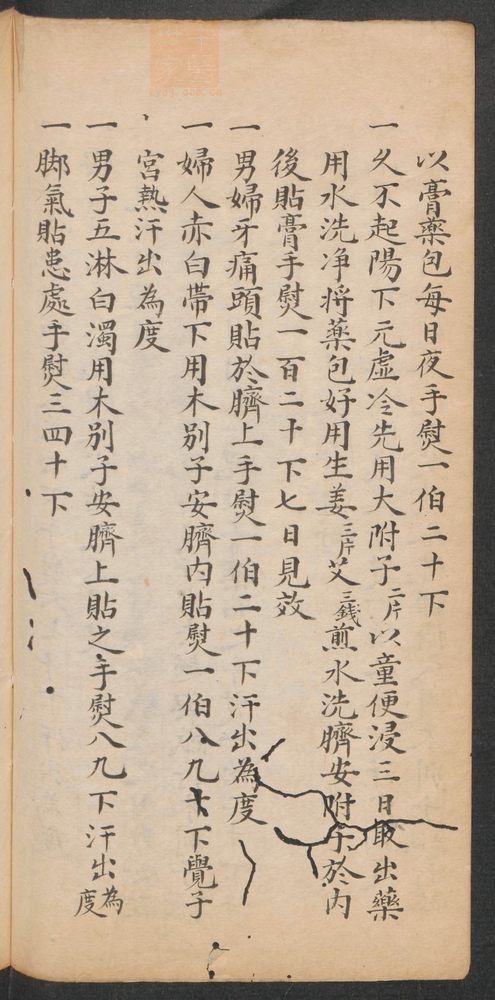 以膏藥包每日夜手熨一伯二十下
一久不起陽下元虛冷先用大附子二片以童便浸三日取出藥
用水洗净将藥包好用生姜三片艾三錢煎水洗臍安附子於内
後貼膏手熨一百二十下七日見效
一男婦牙痛頭貼於臍上手熨一伯二十下汗出為度
一婦人赤白帶下用木別子安臍内貼熨一伯八九十下覺子
宮熱汗出為度
一男子五淋白濁用木别子安臍上貼之手熨八九下汗出為度
一脚氣貼患處手熨三四十下